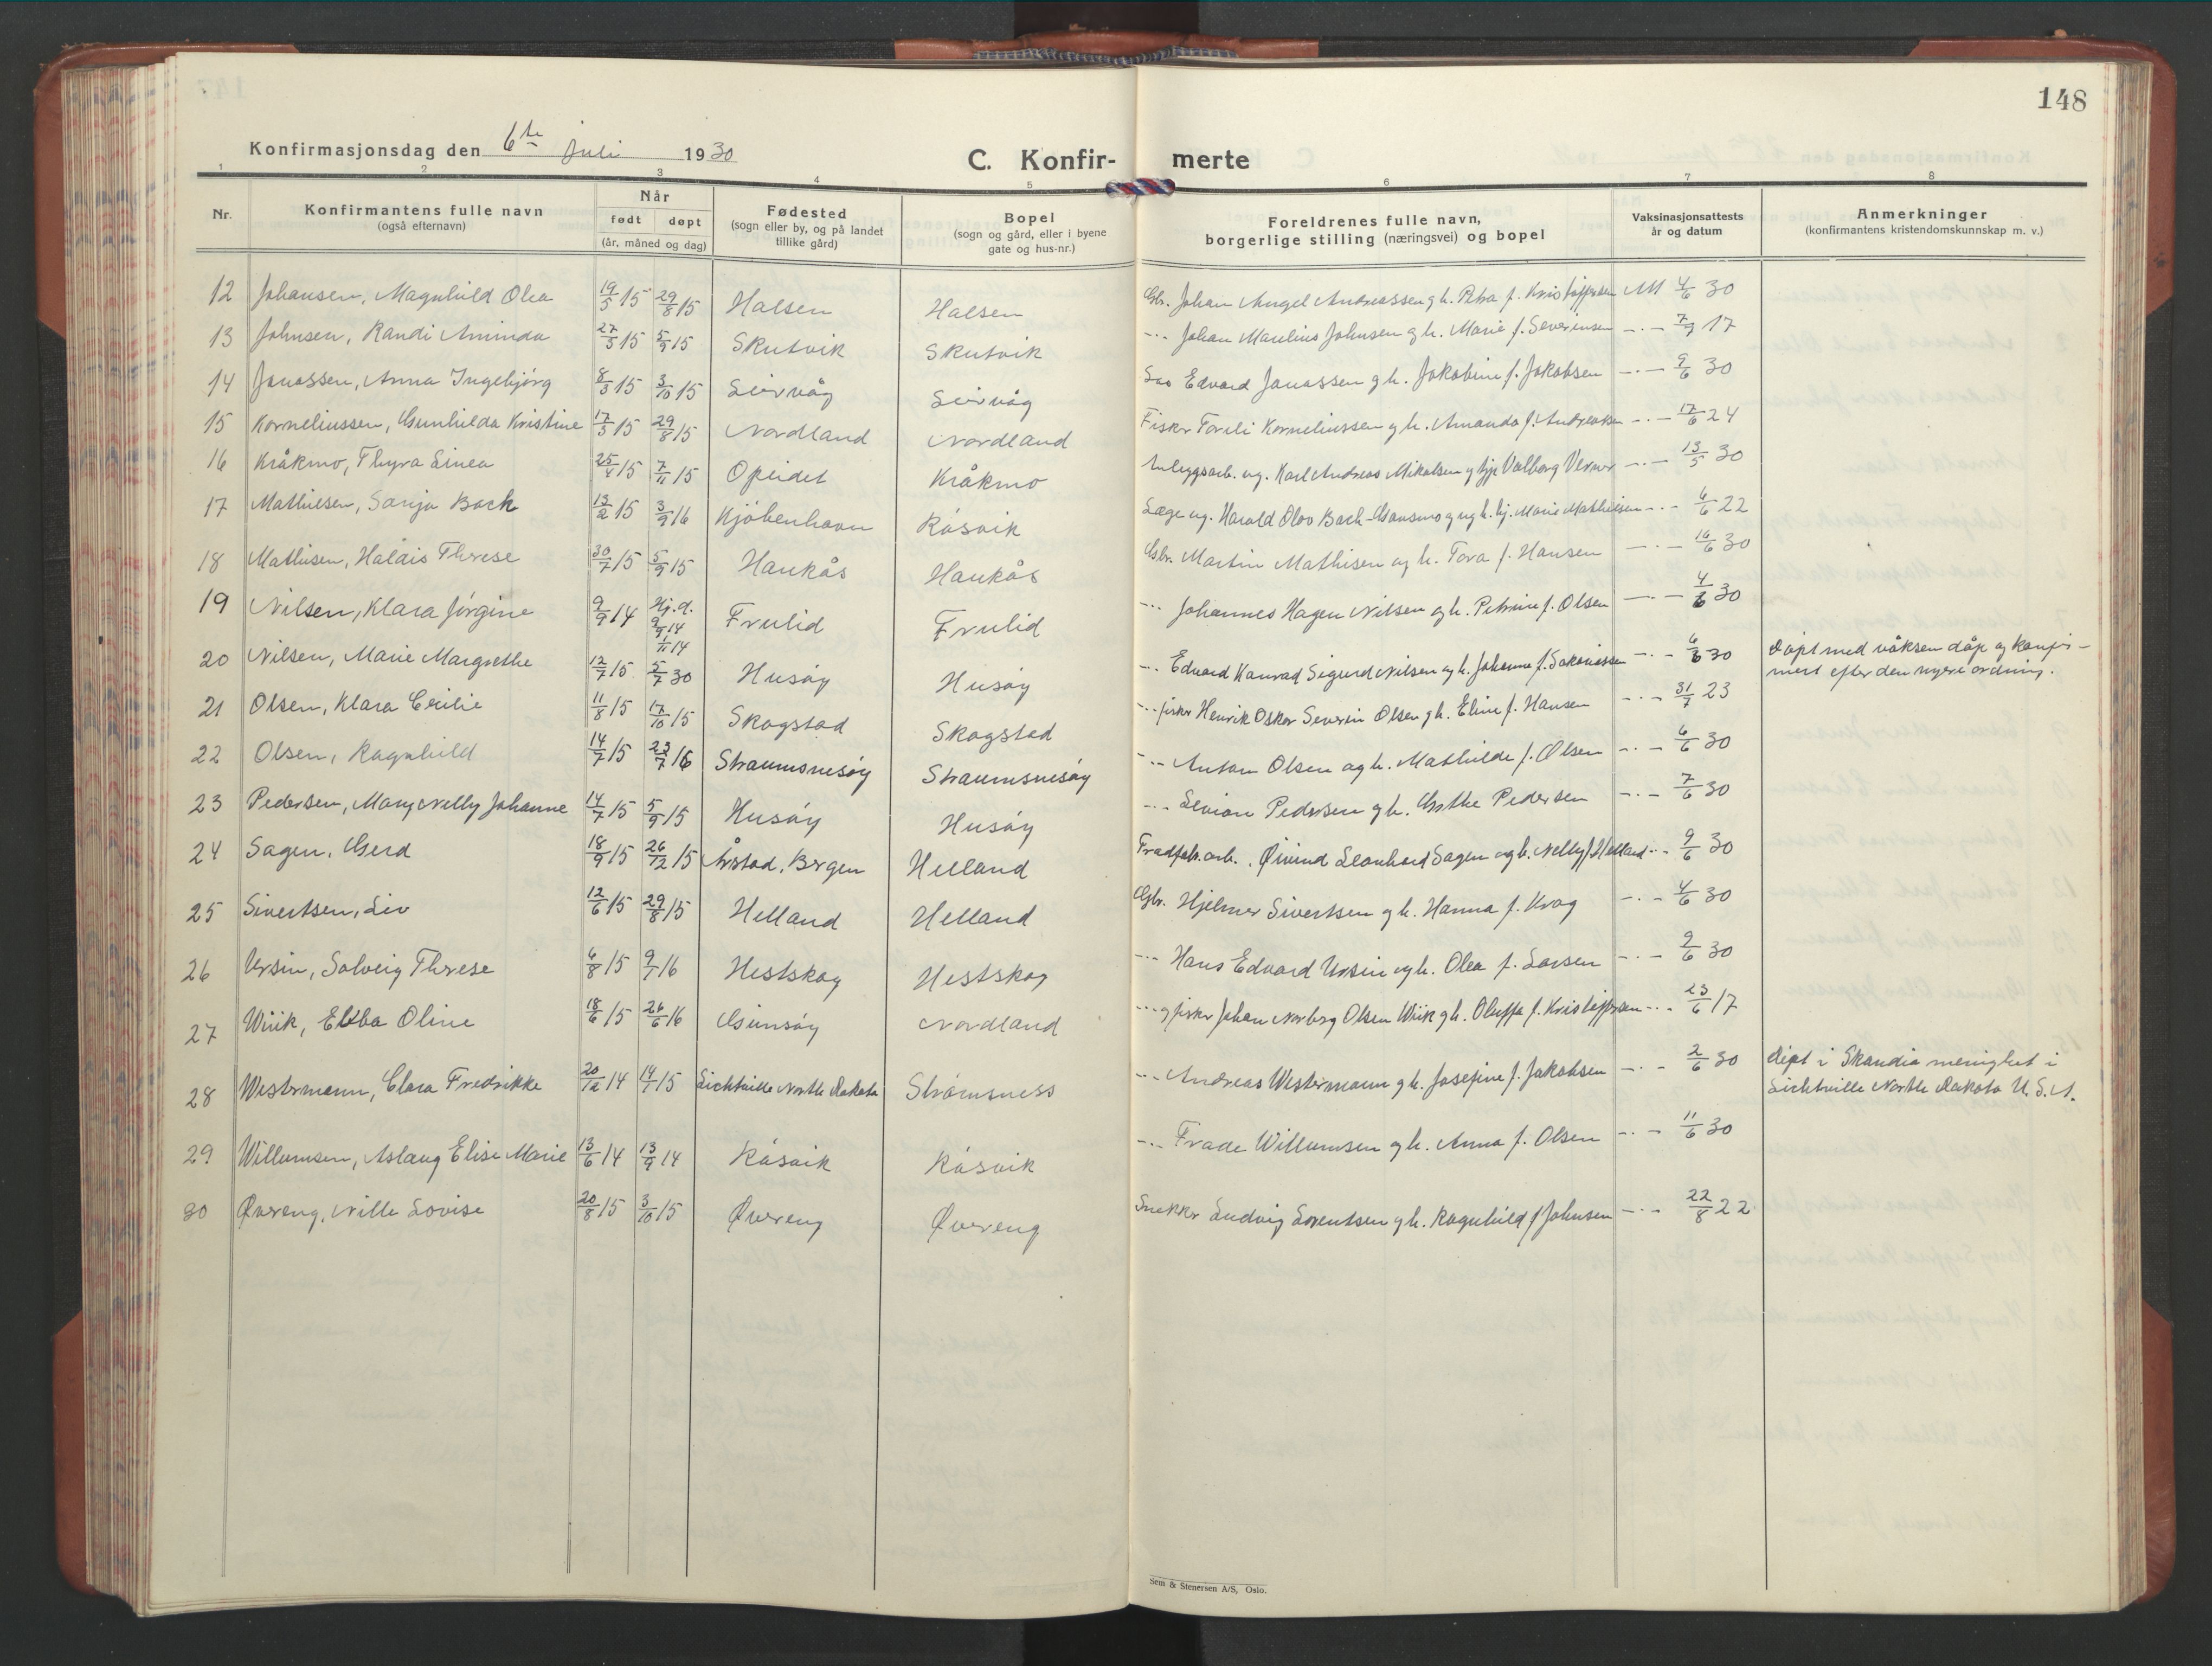 148
Konfirmasjonsdag den 6te juli 1930
C. Konfir- merte
1 2 3 4 5 6 7 8
Nr.
Konfirmantens fulle navn
(også efternavn)
Når
født døpt
(år, måned og dag)
Fødested
(sogn eller by, og på landet
tillike gård)
Bopel
(sogn og gård, eller i byene
gate og hus-nr.)
Foreldrenes fulle navn,
borgerlige stilling (næringsvei) og bopel
Vaksinasjonsattests
år og datum
Anmerkninger
(konfirmantens kristendomskunnskap m. v.)
12 Johansen, Magnhild Olea 19/5 15 29/8 15 Halsen Halsen Gbr. Johan Angel Andreassen g h. Petra f. Kristoffersen M 4/6 30
13 Johnsen, Randi Aminda 27/5 15 5/9 15 Skutvik Skutvik -"- Johan Maulius Johnsen g h. Marie f. Severinsen -"- 7/9 17
14 Jonassen, Anna Ingebjörg 8/3 15 3/10 15 Leirvåg Leirvåg Edvard Jonassen g h. Jakobine f. Jakobsen -"- 9/6 30
15 Korneliussen, Gunhilda Kristine 17/3 15 29/8 15 Nordland Nordland Fisker Toreli Korneliussen g h. Amanda f. Andreassen -"- 17/6 24
16 Kråkmo, Thyra Linea 25/4 15 7/11 15 Opeidet Kråkmo Anleggsarb. ug. Karl Andreas Mikalsen g pp Valborg -"- 13/5 30
17 Mathiesen, Sonja Bach 13/2 15 3/9 16 Kjöbenhavn Råsvik Læge ug. Harald Olov Bach-Gansmo g ug h. hj. Marie Mathiesen -"- 6/6 22
18 Mathisen, Haldis Therese 30/7 15 5/9 15 Haukås Haukås Gbr. Martin Mathisen og h. Tora f. Hansen -"- 16/6 30
19 Nilsen, Klara Jörgine 9/9 14 Hj.d. 9/9 14 1/11 14 Frulid Frulid -"- Johannes Hagen Nilsen og h. Petrine f. Olsen -"- 4/6 30
20 Nilsen, Marie Margrethe 12/7 15 5/7 30 Husöy Husöy -"- Edvard Konrad Sigurd Nilsen og h. Johanne f. Sakariassen -"- 6/6 30 Döpt med våksen dåp og konfir-
mert efter den nyere ordning.
21 Olsen, Klara Cecilie 11/8 15 17/10 15 Skogstad Skogstad -"- fisker Henrik Oskar Severin Olsen g h. Eline f. Hansen -"- 31/7 23
22 Olsen, Ragnhild 14/7 15 23/7 16 Straumsnesöy Straumsnesöy -"- Anton Olsen og h. Mathilde f. Olsen -"- 6/6 30
23 Pedersen, Mary Nelly Johanne 14/7 15 5/9 15 Husöy Husöy -"- Levion Pedersen g h. Pedersen -"- 7/6 30
24 Sagen, Gerd 18/9 15 26/12 15 Årstad, Bergen Helland Trådfab. arb. Øivind Leonhard Sagen og h. Nelly f. Helland -"- 9/6 30
25 Sivertsen, Liv 12/6 15 29/8 15 Helland Helland Gbr. Hjelmer Sivertsen g h. Hanna f. Krog -"- 4/6 30
26 Ursin, Solveig Therese 6/8 15 9/1 16 Hestskog Hestskog -"- Hans Edvard Ursin og h. Olea f. Larsen -"- 9/6 30
27 Wiik, Ebba Oline 18/6 15 26/6 16 Gimsöy Nordland -"- g fisker Johan Norberg Olsen Wiik g h. Oluffa f. Kristoffersen -"- 23/6 17
28 Westermann, Clara Fredrikke 20/12 14 14/1 15 Lichtville North Dakota Strömsness -"- Andreas Westermann g h. Josefine f. Jakobsen -"- 2/6 30 döpt i Skandia menighet i
Lichtville North Dakota U.S.A.
29 Willumsen, Aslaug Elise Marie 13/6 14 13/9 14 Råsvik Råsvik -"- Willumsen g h. Anna f. Olsen -"- 11/6 30
30 Øvereng, Nille Lovise 20/8 15 3/10 15 Øvereng Øvereng Snekker Ludvig Lorentsen g h. Ragnhild f. Johnsen -"- 22/8 22
Sem & Stenersen A/S, Oslo.